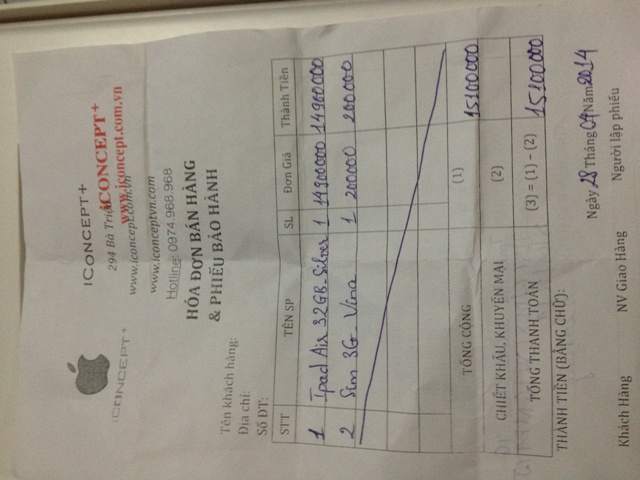 ICONCEPT+
ICONCEPT+
294 Bà Triệu
iCONCEPT+
www.iconcept.com.vn
www.iconcept.com.vn
www.iconceptvn.com
Hotline: 0974.968.968
HÓA ĐƠN BÁN HÀNG
& PHIẾU BẢO HÀNH
Tên khách hàng:
Địa chỉ:
Số ĐT:
STT TÊN SP SL Đơn Giá Thành Tiền
1 Ipad Air 32GB_Silver 1 14900000 14900000
2 Sim 3G_ Vina 1 200000 200000
TỔNG CỘNG (1) 15100000
CHIẾT KHẤU, KHUYẾN MẠI (2)
TỔNG THANH TOÁN (3) = (1) - (2) 15100000
THÀNH TIỀN (BẰNG CHỮ):
Ngày 28 Tháng 04 Năm 2014
Khách Hàng NV Giao Hàng Người lập phiếu